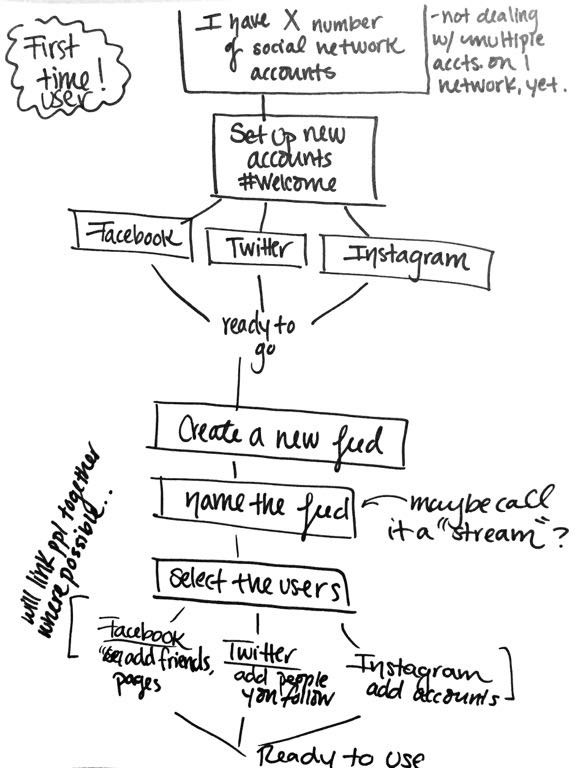 First
time!
user
I have X number
of social network
accounts
-not dealing
w/ multiple
accts. on 1
network, yet.
Set up new
accounts
#Welcome
Facebook
Twitter
Instagram
ready to
go
Create a new feed
name the feed
maybe call
it a "stream"?
will link ppl together
where possible...
Select the users
Facebook
add friends,
pages
Twitter
add people
you follow
Instagram
add accounts
Ready to use